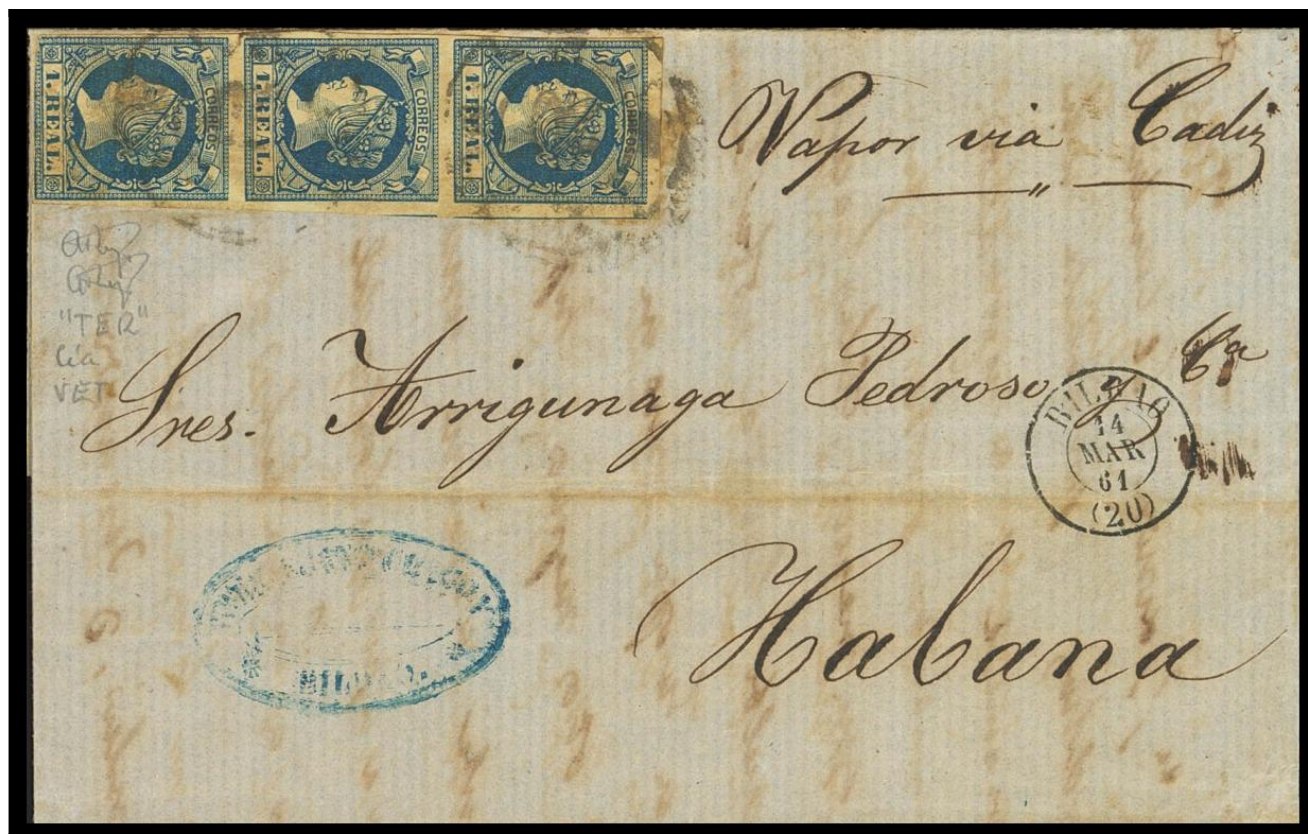 1. REAL. CORREOS
1. REAL. CORREOS
1. REAL. CORREOS
Vapor via Cadiz
"TER"
Cía
VET
Sres. Arrigunaga Pedroso y Ca
BILBAO
14
MAR
61
(20)
BILBAO.
Habana